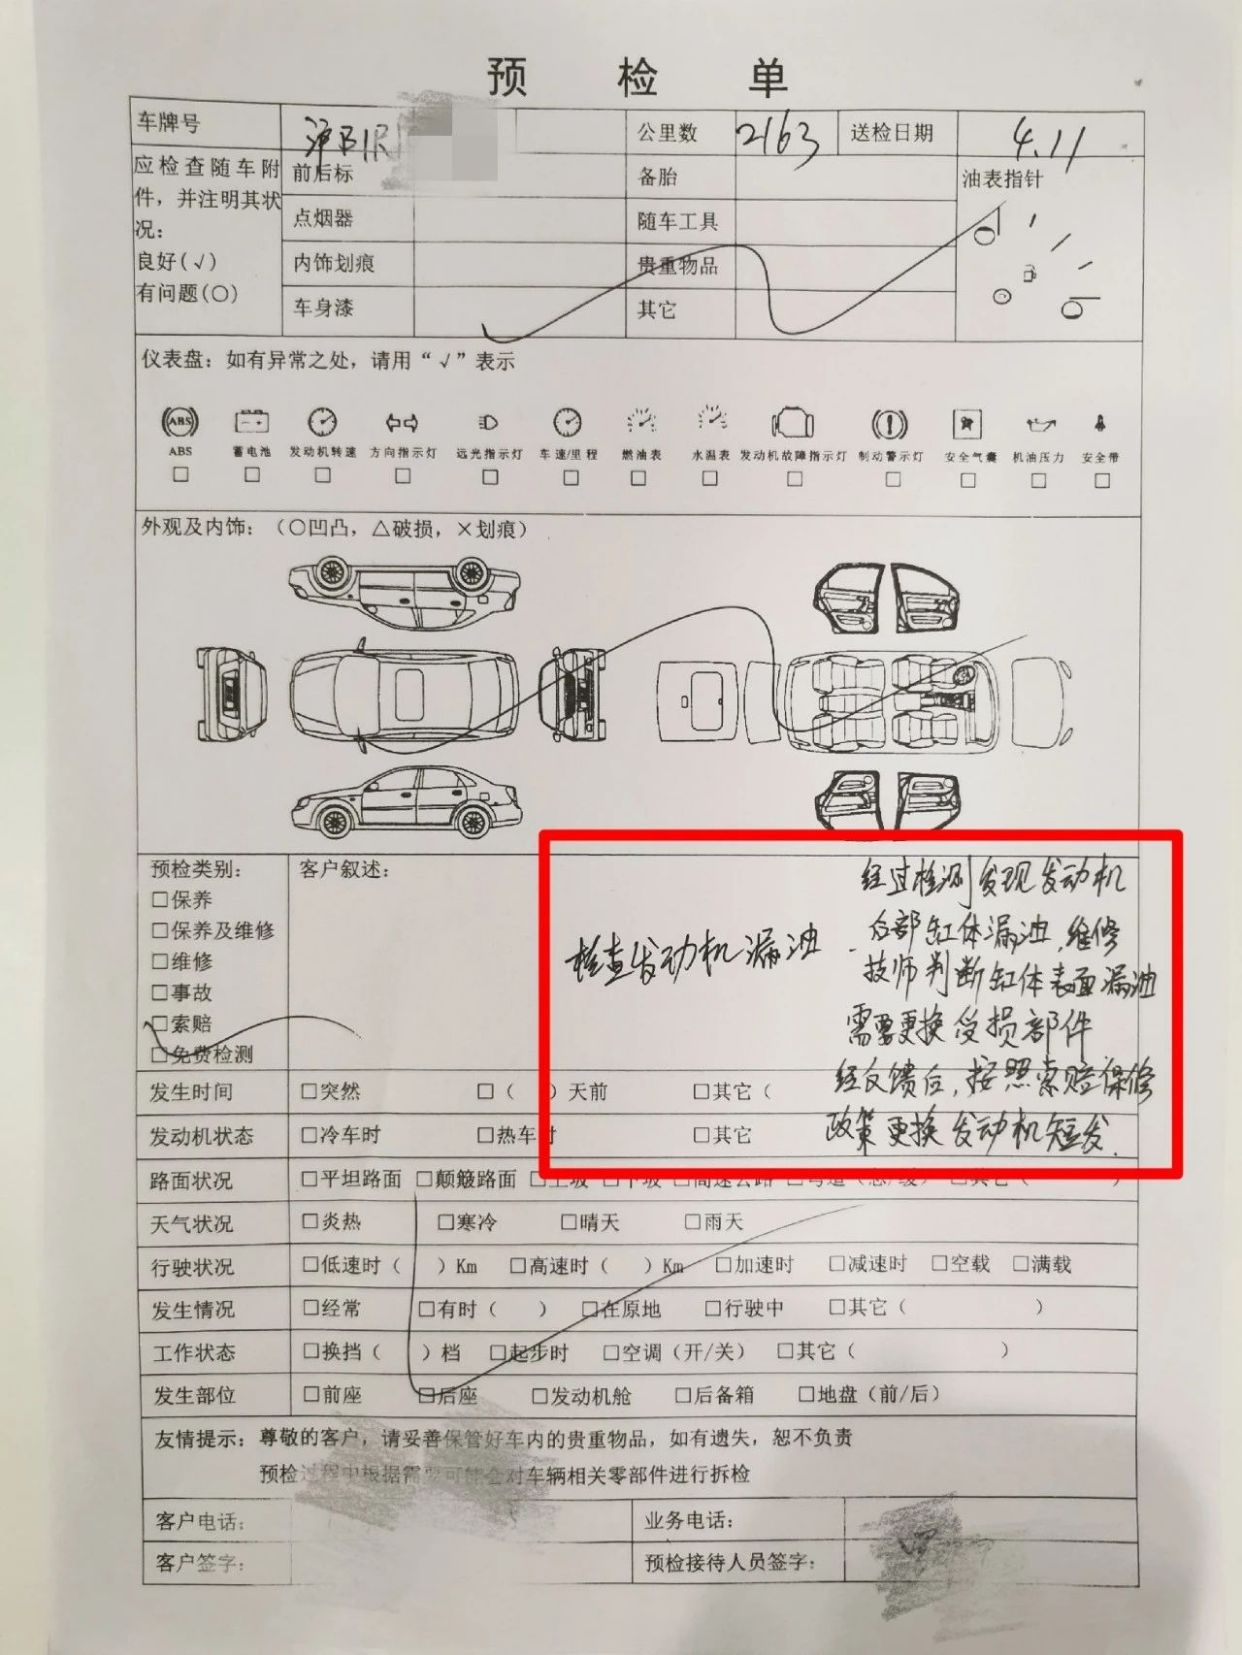 预 检 单
车牌号
公里数 2163 送检日期 4.11
应检查随车附
件，并注明其状
况：
良好(√)
有问题(○)
前后标 备胎 油表指针
点烟器 随车工具
内饰划痕 贵重物品
车身漆 其它
仪表盘：如有异常之处，请用“√”表示
ABS
ABS □ 蓄电池 □ 发动机转速 □ 方向指示灯 □ 远光指示灯 □ 车速/里程 □ 燃油表 □ 水温表 □ 发动机故障指示灯 □ 制动警示灯 □ 安全气囊 □ 机油压力 □ 安全带 □
外观及内饰：（○凹凸，△破损，×划痕）
预检类别：
□保养
□保养及维修
□维修
□事故
□索赔
□免费检测
客户叙述：
检查发动机漏油
经过检测发现发动机
后部缸体漏油，维修
技师判断缸体表面漏油
需要更换受损部件
经反馈后，按照索赔保修
政策更换发动机短发.
发生时间 □突然 □（ ）天前 □其它（
发动机状态 □冷车时 □热车时 □其它
路面状况 □平坦路面 □颠簸路面 □上坡 □下坡 □高速公路 □弯道（急/缓） □其它（ ）
天气状况 □炎热 □寒冷 □晴天 □雨天
行驶状况 □低速时（ ）Km □高速时（ ）Km □加速时 □减速时 □空载 □满载
发生情况 □经常 □有时（ ） □在原地 □行驶中 □其它（ ）
工作状态 □换挡（ ）档 □起步时 □空调（开/关） □其它（ ）
发生部位 □前座 □后座 □发动机舱 □后备箱 □地盘（前/后）
友情提示：尊敬的客户，请妥善保管好车内的贵重物品，如有遗失，恕不负责
预检过程中根据需要可能会对车辆相关零部件进行拆检
客户电话： 业务电话：
客户签字： 预检接待人员签字：